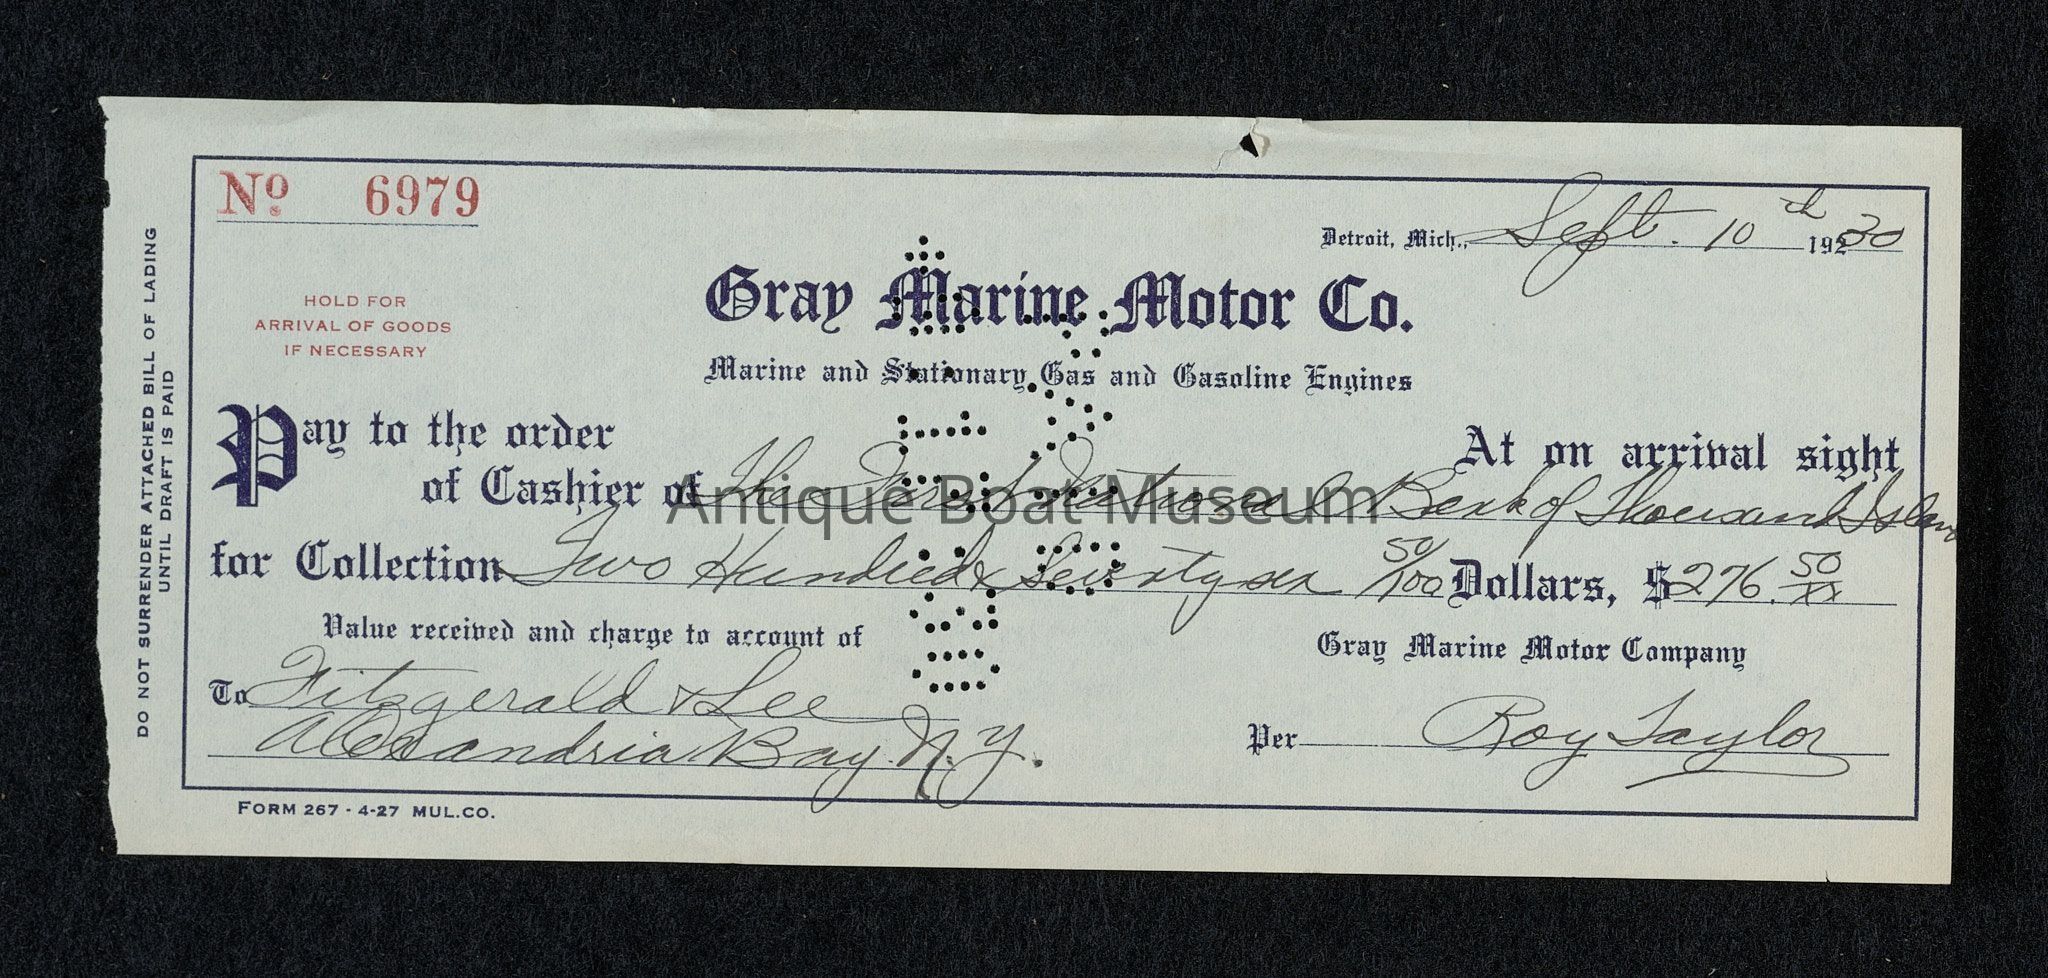 No 6979
Detroit, Mich., Sept. 10th 19230
HOLD FOR
ARRIVAL OF GOODS
IF NECESSARY
Gray Marine Motor Co.
Marine and Stationary Gas and Gasoline Engines
Pay to the order
At on arrival sight
of Cashier of The First National Bank of Thousand Islan
for Collection Two Hundred & Seventy six 50/100 Dollars, $276.50/xx
Value received and charge to account of
Gray Marine Motor Company
To Fitzgerald & Lee
Alexandria Bay. N.Y.
Per Roy Taylor
FORM 267 - 4-27 MUL.CO.
DO NOT SURRENDER ATTACHED BILL OF LADING
UNTIL DRAFT IS PAID
Antique Boat Museum